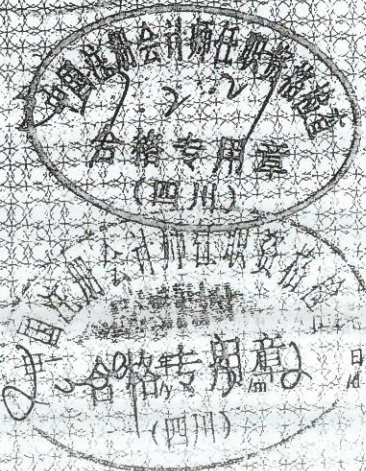 中国注册会计师任职资格检查
合格专用章
(四川)
中国注册会计师任职资格检
合格专用章
年 日
/y /m /d
(四川)